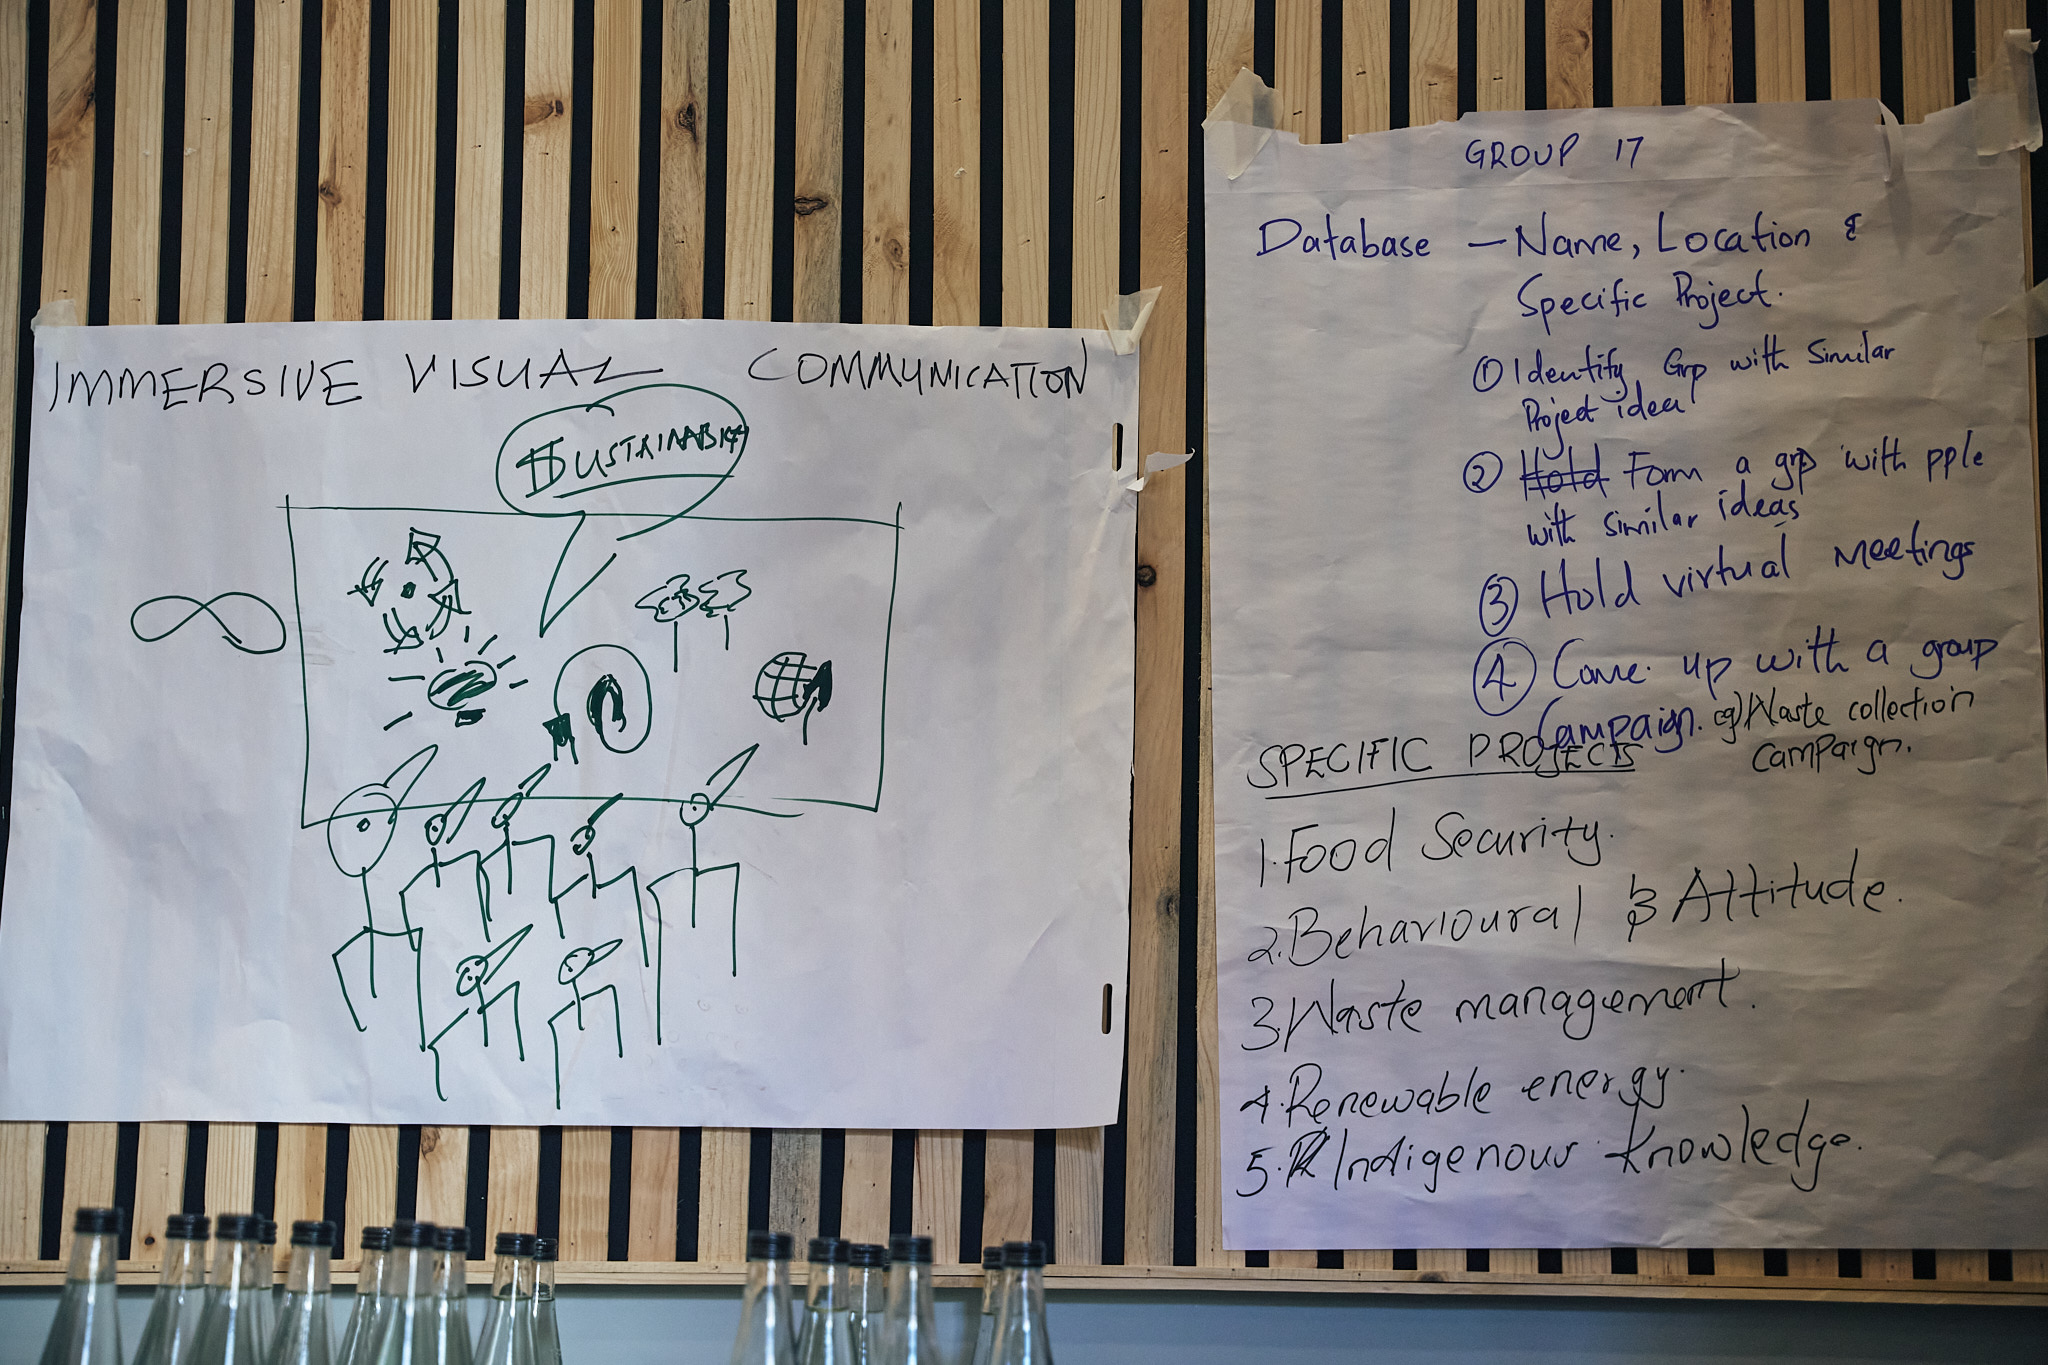 IMMERSIVE VISUAL COMMUNICATION
SUSTAINABIT
GROUP 17
Database - Name, Location &
Specific Project.
① Identify Grp with Similar
Project idea
② Hold Form a grp with pple
with similar ideas
③ Hold virtual meetings
④ Come up with a group
Campaign. eg) Waste collection
campaign.
SPECIFIC PROJECTS
1. Food Security.
2. Behavioural & Attitude.
3. Waste management.
4. Renewable energy.
5. R Indigenous Knowledge.